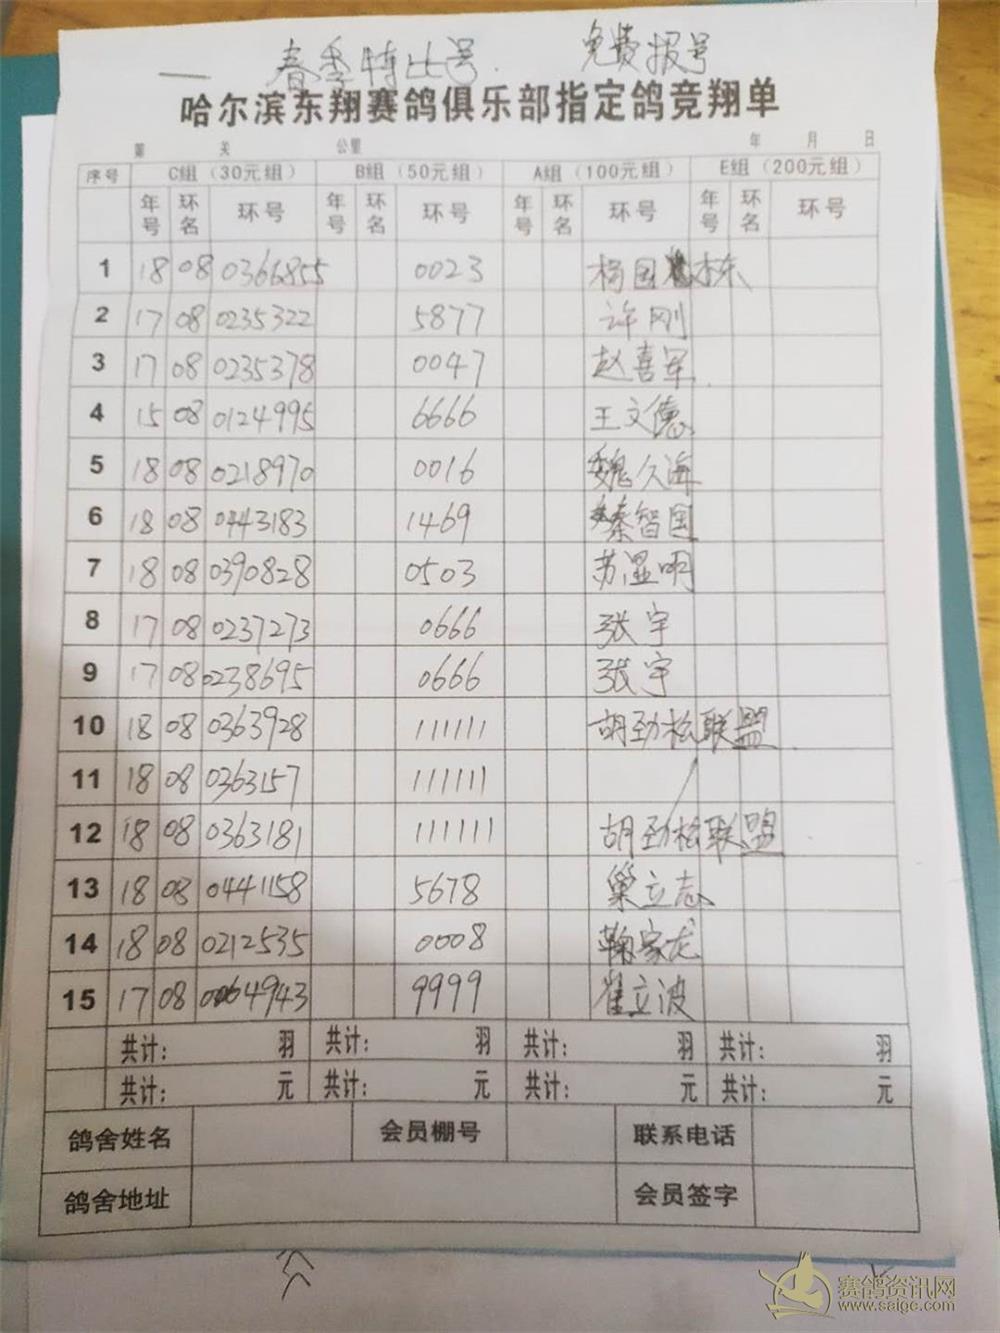 春季特比号. 免费报号
哈尔滨东翔赛鸽俱乐部指定鸽竞翔单
第 关 公里 年 月 日
序号 C组（30元组） B组（50元组） A组（100元组） E组（200元组）
年号 环名 环号 年号 环名 环号 年号 环名 环号 年号 环名 环号
1 18 08 0366855 0023 杨国栋
2 17 08 0235322 5877 许刚
3 17 08 0235378 0047 赵喜军
4 15 08 0124995 6666 王文德
5 18 08 0218970 0016 魏久海
6 18 08 0443183 1469 秦智国
7 18 08 0390828 0503 苏显明
8 17 08 0237273 0666 张宇
9 17 08 0238695 0666 张宇
10 18 08 0363928 111111 胡劲松联盟
11 18 08 0363157 111111
12 18 08 0363181 111111 胡劲松联盟
13 18 08 0441158 5678 巢立志
14 18 08 0212535 0008 鞠家龙
15 17 08 0064943 9999 崔立波
共计： 羽 共计： 羽 共计： 羽 共计： 羽
共计： 元 共计： 元 共计： 元 共计： 元
鸽舍姓名 会员棚号 联系电话
鸽舍地址 会员签字
赛鸽资讯网
www.saigc.com